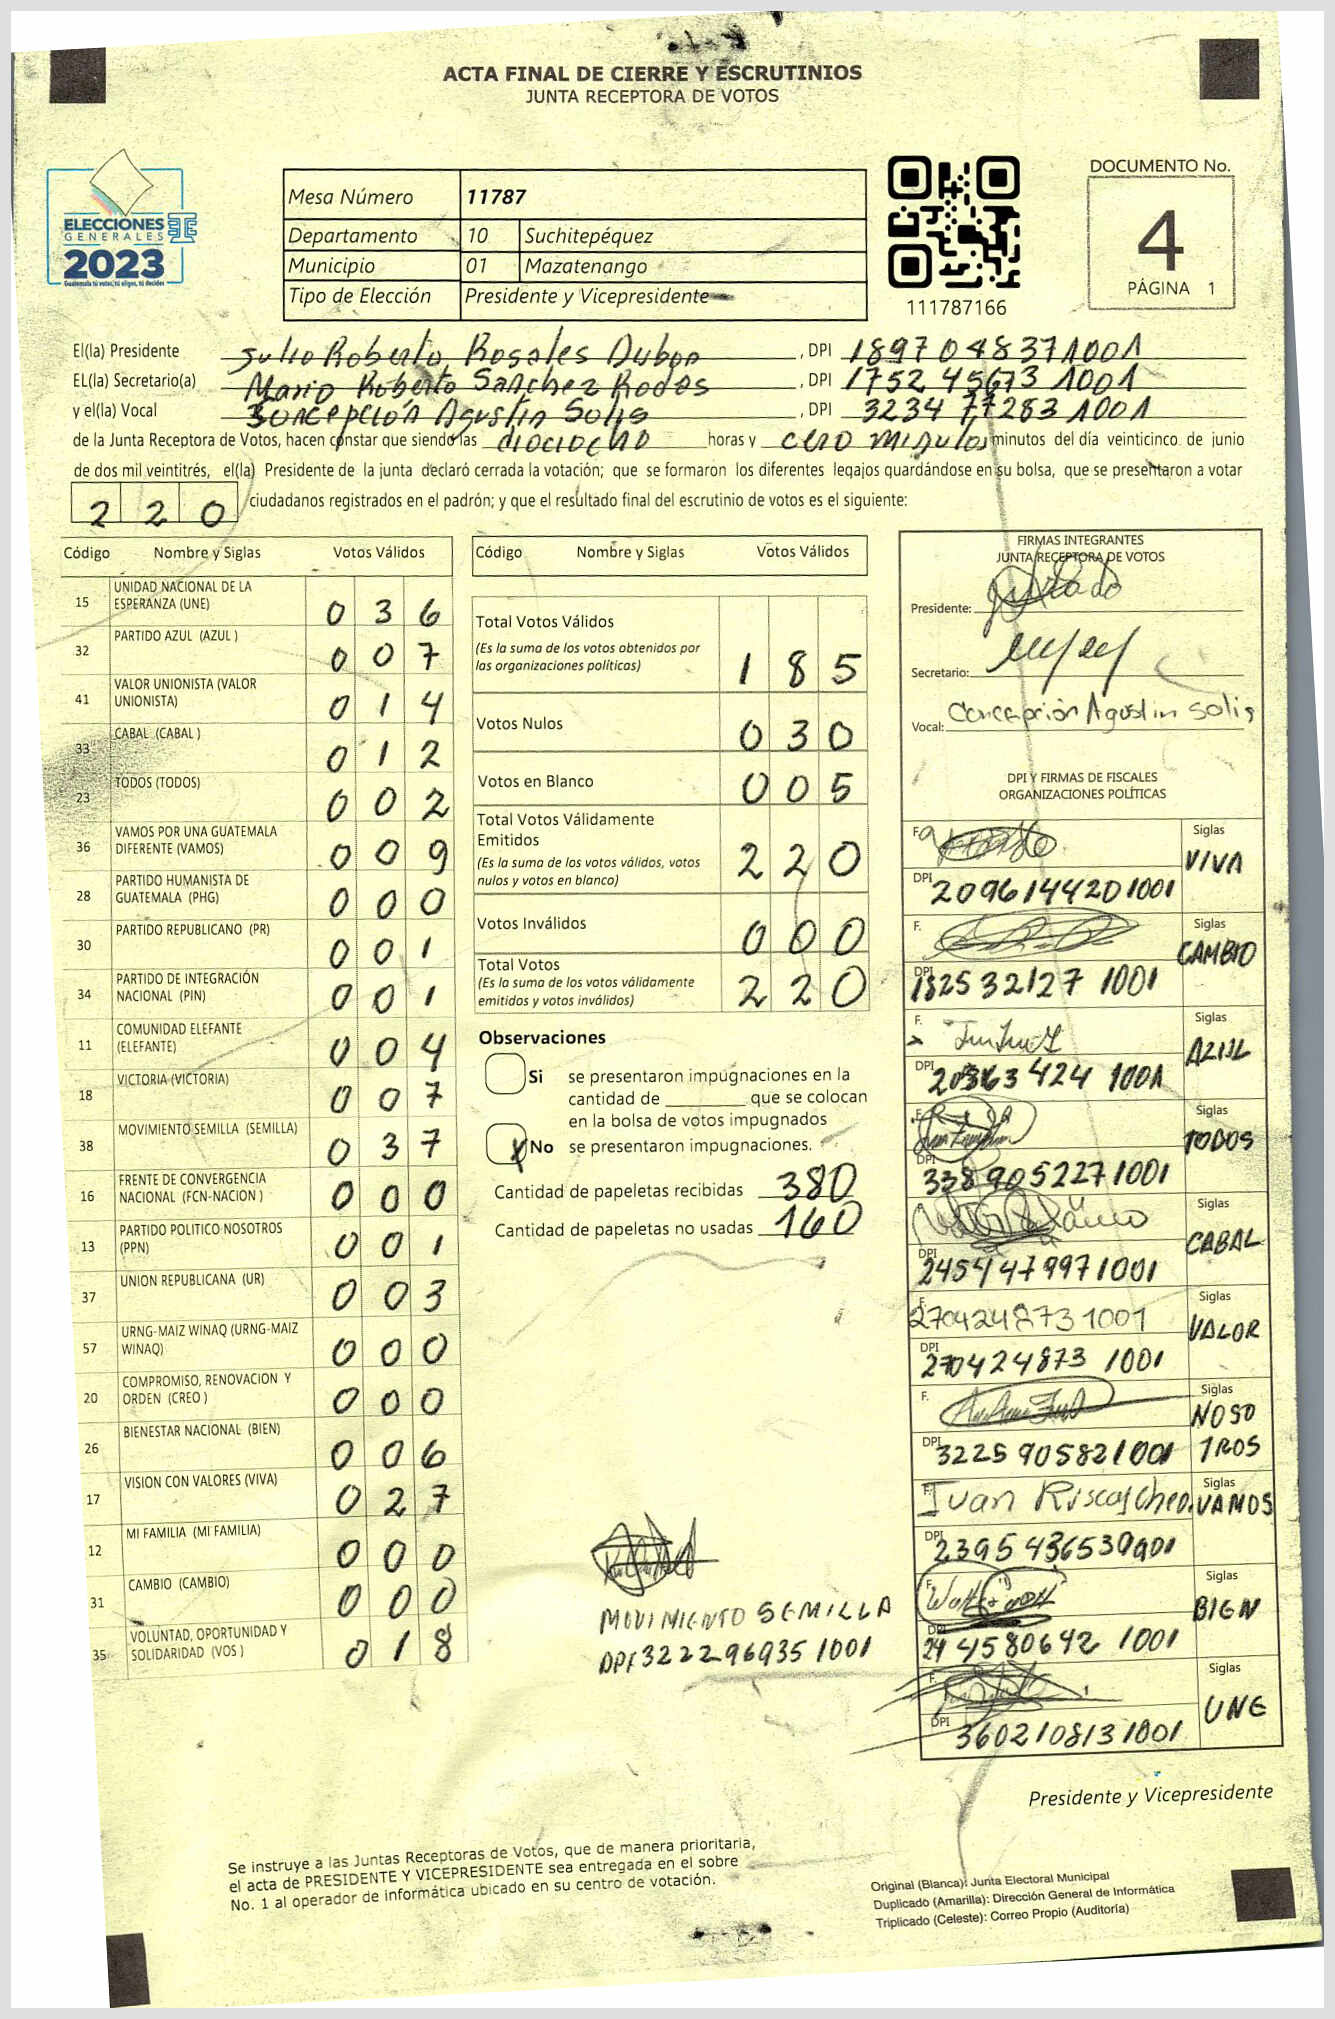 ACTA FINAL DE CIERRE Y ESCRUTINIOS
JUNTA RECEPTORA DE VOTOS
ELECCIONES
GENERALES
2023
Guatemala tú votas, tú eliges, tú decides
Mesa Número 11787
Departamento 10 Suchitepéquez
Municipio 01 Mazatenango
Tipo de Elección Presidente y Vicepresidente
111787166
DOCUMENTO No.
4
PÁGINA 1
El(la) Presidente Julio Roberto Rosales Dubon , DPI 1897048371001
EL(la) Secretario(a) Mario Roberto Sanchez Rodas , DPI 1752 45673 1001
y el(la) Vocal Concepción Agustin Solis , DPI 3234 77283 1001
de la Junta Receptora de Votos, hacen constar que siendo las dieciocho horas y cero minutos minutos del día veinticinco de junio
de dos mil veintitrés, el(la) Presidente de la junta declaró cerrada la votación; que se formaron los diferentes legajos guardándose en su bolsa, que se presentaron a votar
220 ciudadanos registrados en el padrón; y que el resultado final del escrutinio de votos es el siguiente:
Código Nombre y Siglas Votos Válidos
15 UNIDAD NACIONAL DE LA ESPERANZA (UNE) 036
32 PARTIDO AZUL (AZUL ) 007
41 VALOR UNIONISTA (VALOR UNIONISTA) 014
33 CABAL (CABAL ) 012
23 TODOS (TODOS) 002
36 VAMOS POR UNA GUATEMALA DIFERENTE (VAMOS) 009
28 PARTIDO HUMANISTA DE GUATEMALA (PHG) 000
30 PARTIDO REPUBLICANO (PR) 001
34 PARTIDO DE INTEGRACIÓN NACIONAL (PIN) 001
11 COMUNIDAD ELEFANTE (ELEFANTE) 004
18 VICTORIA (VICTORIA) 007
38 MOVIMIENTO SEMILLA (SEMILLA) 037
16 FRENTE DE CONVERGENCIA NACIONAL (FCN-NACION ) 000
13 PARTIDO POLITICO NOSOTROS (PPN) 001
37 UNION REPUBLICANA (UR) 003
57 URNG-MAIZ WINAQ (URNG-MAIZ WINAQ) 000
20 COMPROMISO, RENOVACION Y ORDEN (CREO ) 000
26 BIENESTAR NACIONAL (BIEN) 006
17 VISION CON VALORES (VIVA) 027
12 MI FAMILIA (MI FAMILIA) 000
31 CAMBIO (CAMBIO) 000
35 VOLUNTAD, OPORTUNIDAD Y SOLIDARIDAD (VOS ) 018
Código Nombre y Siglas Votos Válidos
Total Votos Válidos
(Es la suma de los votos obtenidos por
las organizaciones políticas) 185
Votos Nulos 030
Votos en Blanco 005
Total Votos Válidamente
Emitidos
(Es la suma de los votos válidos, votos
nulos y votos en blanco) 220
Votos Inválidos 000
Total Votos
(Es la suma de los votos válidamente
emitidos y votos inválidos) 220
Observaciones
Si se presentaron impugnaciones en la
cantidad de ________ que se colocan
en la bolsa de votos impugnados
X No se presentaron impugnaciones.
Cantidad de papeletas recibidas 380
Cantidad de papeletas no usadas 160
MOVIMIENTO SEMILLA
DPI 322296935 1001
FIRMAS INTEGRANTES
JUNTA RECEPTORA DE VOTOS
Presidente:
Secretario:
Vocal: Concepción Agustin Solis
DPI Y FIRMAS DE FISCALES
ORGANIZACIONES POLÍTICAS
F. Siglas VIVA
DPI 2096144201001
F. Siglas CAMBIO
DPI 182532127 1001
F. Siglas AZUL
DPI 1001
F. Siglas TODOS
DPI 3389052271001
F. Siglas CABAL
DPI 2454479971001
F. 2704248731001 Siglas VALOR
DPI 270424873 1001
F. Siglas NOSOTROS
DPI 3225905821001
F. Juan Siglas VAMOS
DPI 2395
F. Siglas BIEN
DPI 244580642 1001
F. Siglas UNE
DPI 3602108131001
Presidente y Vicepresidente
Se instruye a las Juntas Receptoras de Votos, que de manera prioritaria,
el acta de PRESIDENTE Y VICEPRESIDENTE sea entregada en el sobre
No. 1 al operador de informática ubicado en su centro de votación.
Original (Blanca): Junta Electoral Municipal
Duplicado (Amarilla): Dirección General de Informática
Triplicado (Celeste): Correo Propio (Auditoría)